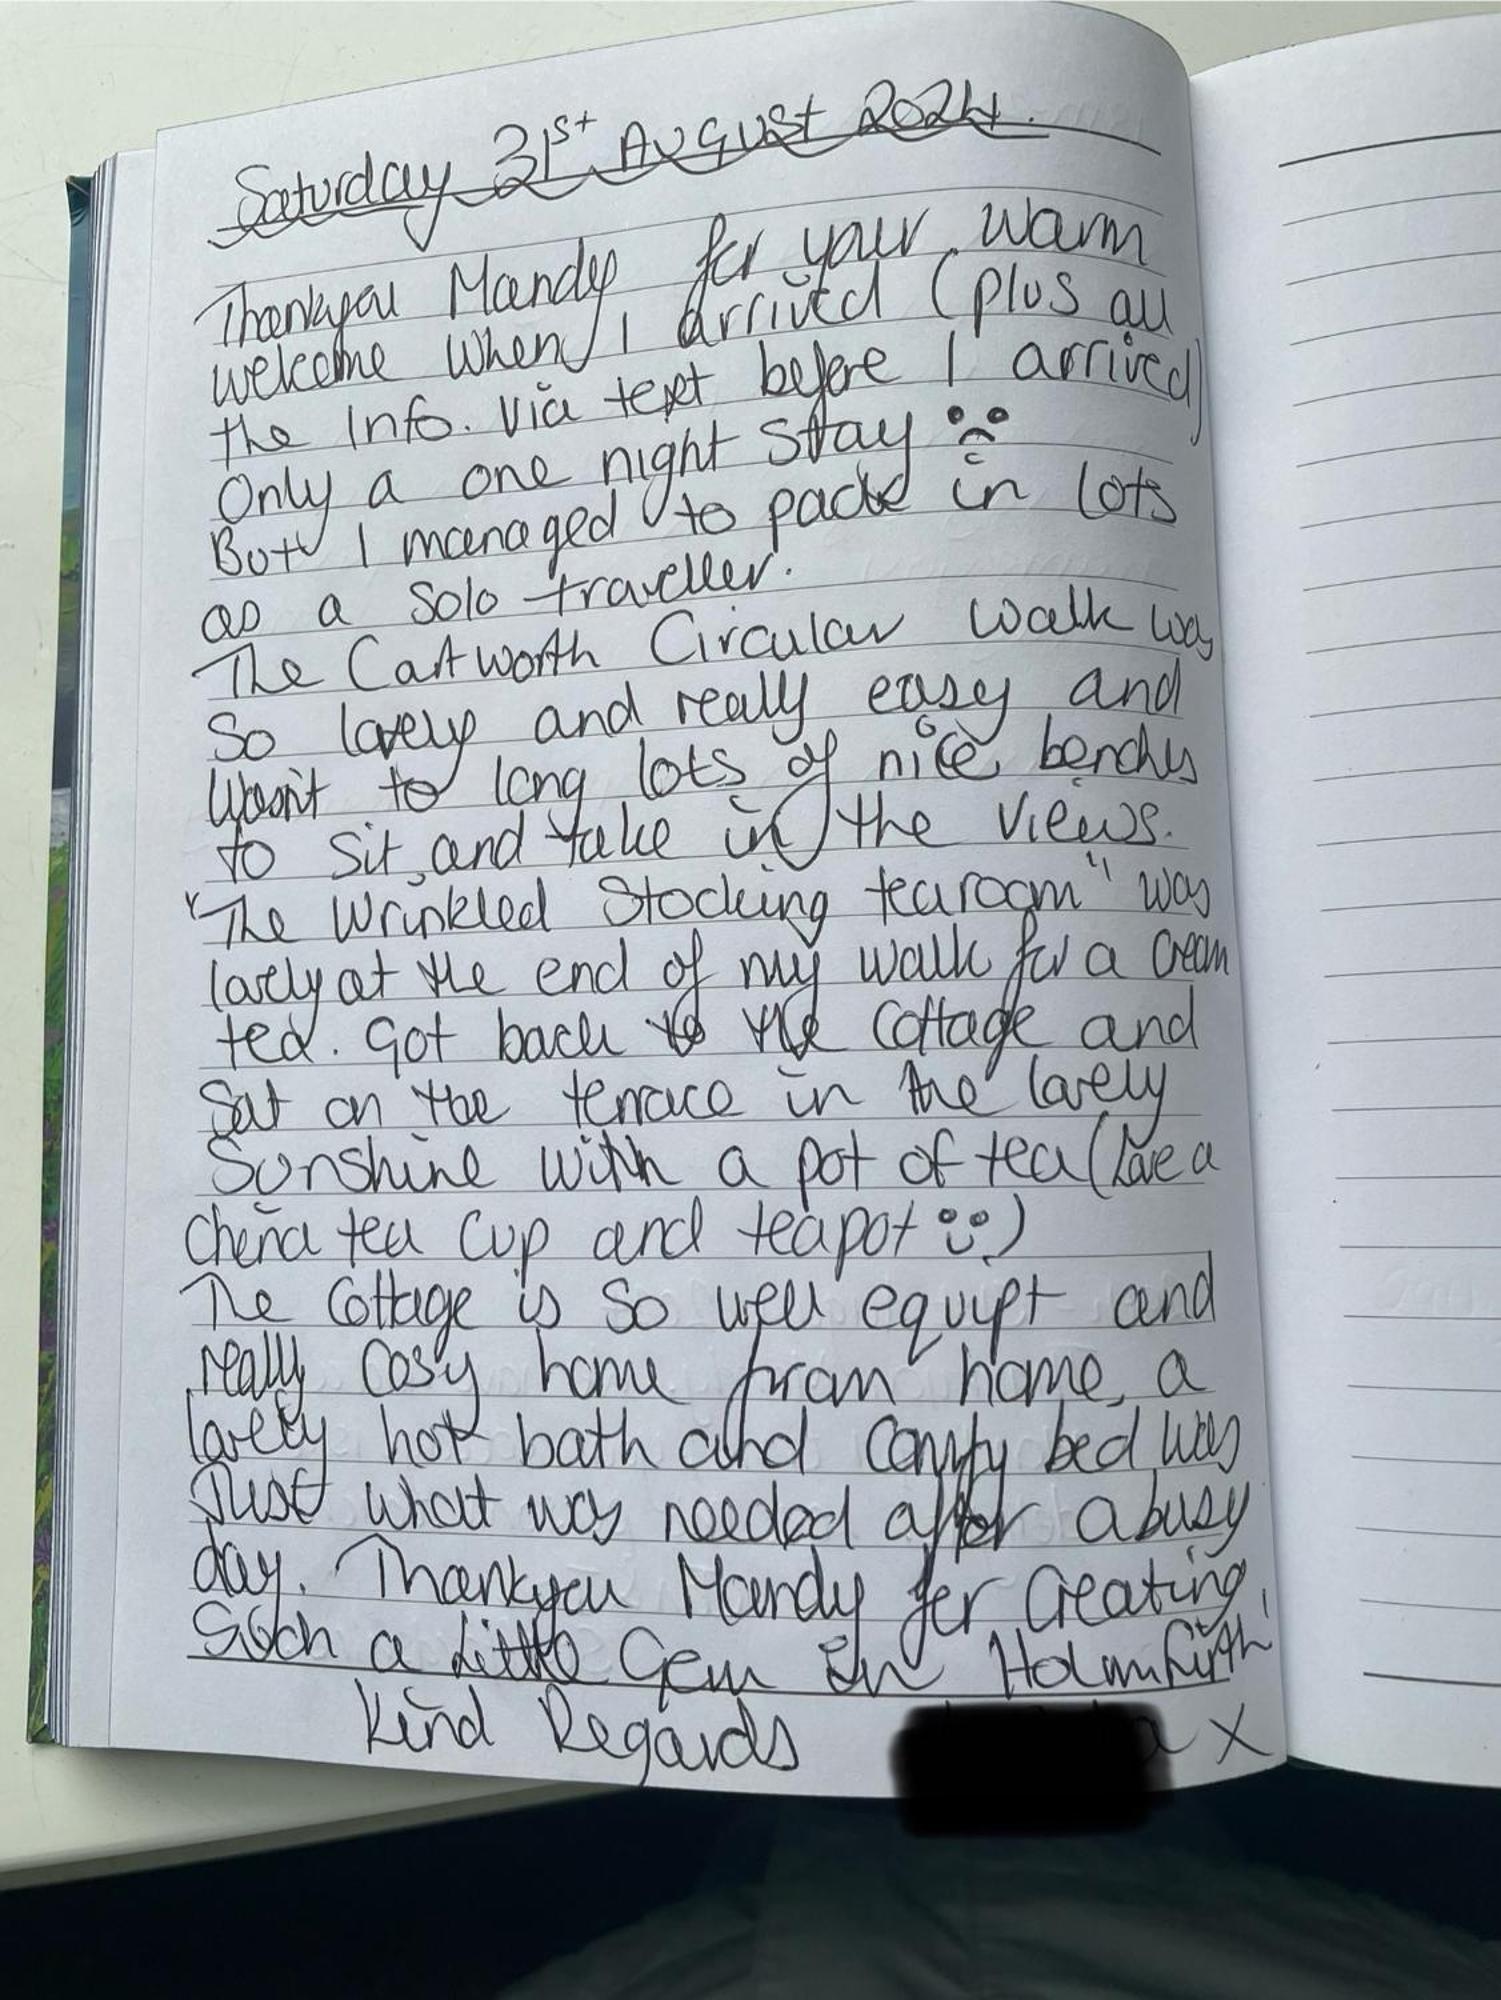 Saturday 31st August 2024.
Thankyou Mandy for your warm
welcome when I arrived (plus all
the Info. via text before I arrived)
Only a one night stay ☹
But I managed to pack in lots
as a Solo traveller.
The Cartworth Circular walk was
So lovely and really easy and
Wasn't to long lots of nice benches
to sit, and take in the views.
"The Wrinkled Stocking tearoom" was
lovely at the end of my walk for a cream
tea. Got back to the Cottage and
Sat on the terrace in the lovely
Sunshine with a pot of tea (Love a
China tea cup and teapot ☺)
The Cottage is so well equipt and
really Cosy home from home, a
lovely hot bath and comfy bed was
Just what was needed after a busy
day. Thankyou Mandy for Creating
Such a Little Gem in Holmfirth!
Kind Regards x